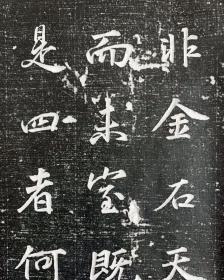 非金石天
而未室既
是四者何